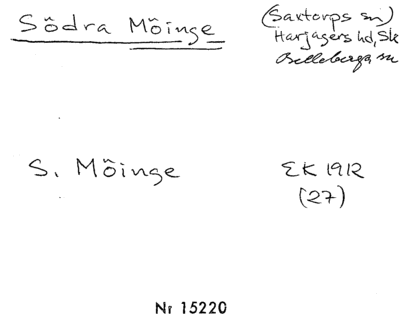 Södra Möinge
(Saxtorps sn)
Harjagers hd, Sk
Billeberga sn
S. Möinge
EK 1912
(27)
Nr 15220